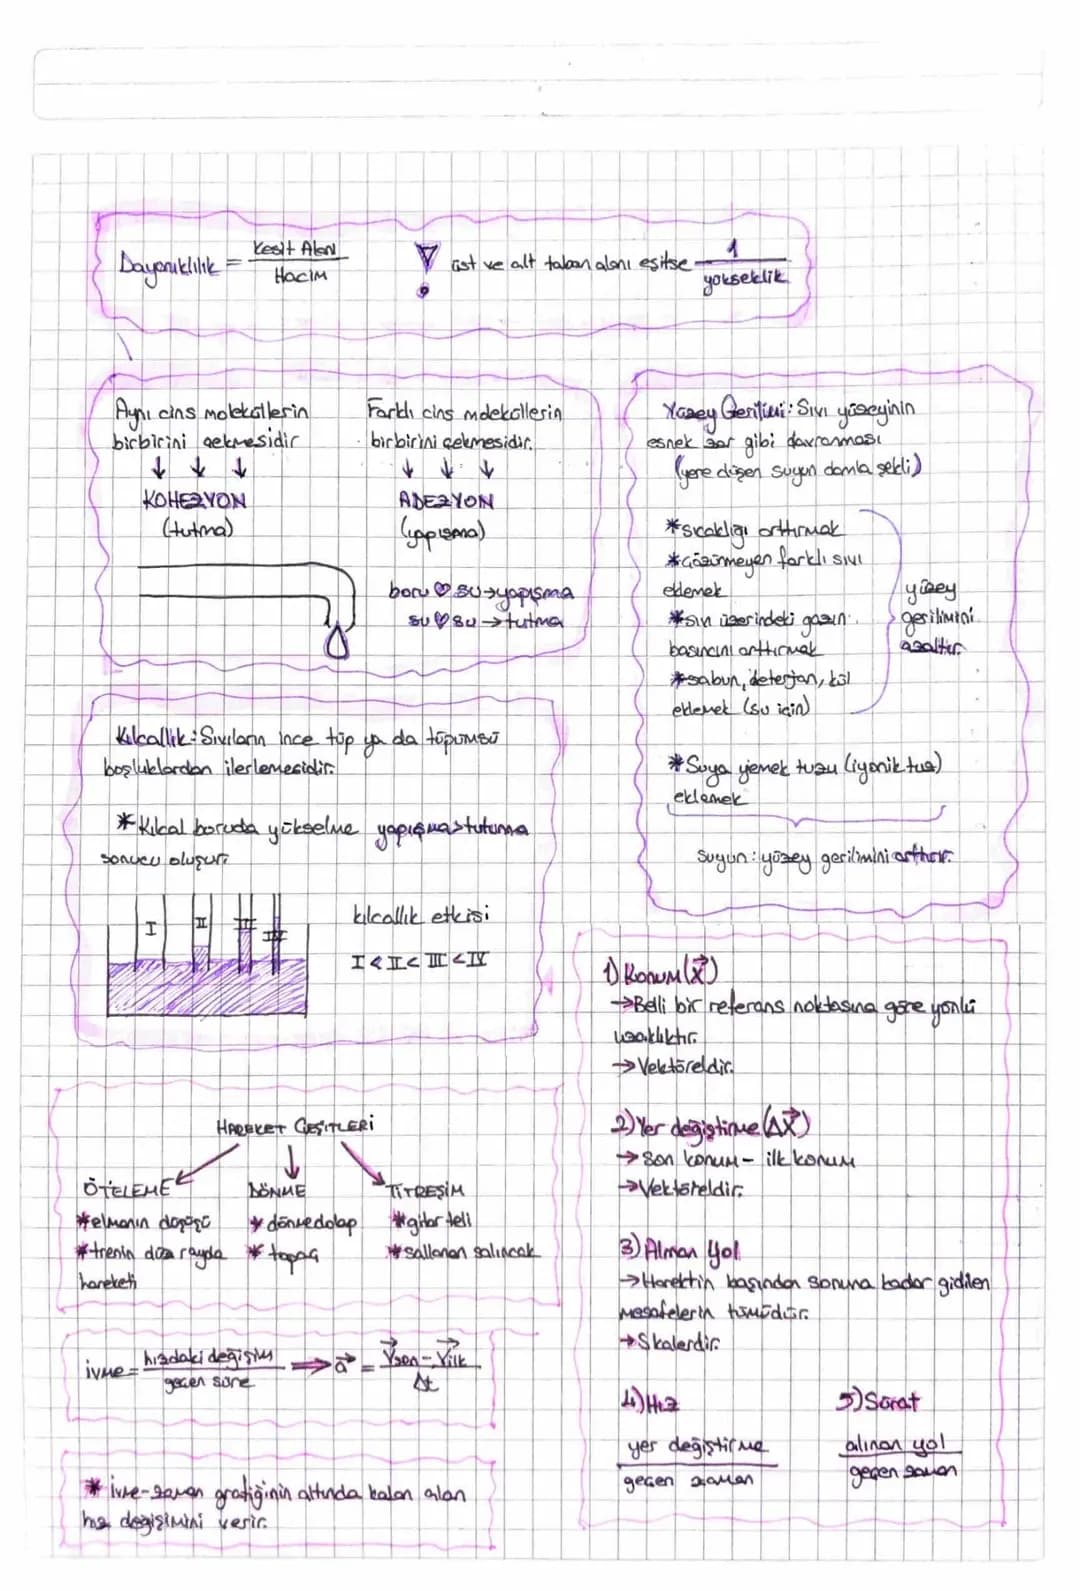 Dayanıklılık = Kesit Alanı
Hacim
üst ve alt taban alanı eşitse 1
yükseklik
Aynı cins moleküllerin
birbirini çekmesidir
↓ ↓ ↓
KOHEZYON
(tutma)
Farklı cins moleküllerin
birbirini çekmesidir.
↓ ↓ ↓
ADEZYON
(yapışma)
boru ♡ su→yapışma
su ♡ su→tutma
Yüzey Gerilimi: Sıvı yüzeyinin
esnek zar gibi davranması
(yere düşen suyun damla şekli)
*sıcaklığı arttırmak
*Çözünmeyen farklı sıvı
eklemek
*sıvı üzerindeki gazın
basıncını arttırmak
*sabun, deterjan, kül
eklemek (su için)
yüzey
gerilimini
azaltır.
*Suya yemek tuzu (iyonik tuz)
eklemek
suyun: yüzey gerilimini arttırır.
Kılcallık: Sıvıların ince tüp ya da tüpümsü
boşluklardan ilerlemesidir.
*Kılcal boruda yükselme yapışma>tutunma
sonucu oluşur.
I II III IV
kılcallık etkisi
I < II < III < IV
1) Konum (X)
→Belli bir referans noktasına göre yönlü
uzaklıktır.
→Vektöreldir.
2) Yer değiştirme (ΔX)
→Son konum - ilk konum
→Vektöreldir.
3) Alınan Yol
→Harektin başından sonuna kadar gidilen
mesafelerin tümüdür.
→Skalerdir.
4) Hız
yer değiştirme
geçen zaman
5) Sürat
alınan yol
geçen zaman
HAREKET ÇEŞİTLERİ
ÖTELEME
*elmanın düşüşü
*trenin düz rayda
hareketi
DÖNME
*dönmedolap
*topaç
TİTREŞİM
*gitar teli
*sallanan salıncak
ivme = hızdaki değişim ⇒ a = Vson - Vilk
geçen süre Δt
* İvme-zaman grafiğinin altında kalan alan
hız değişimini verir.